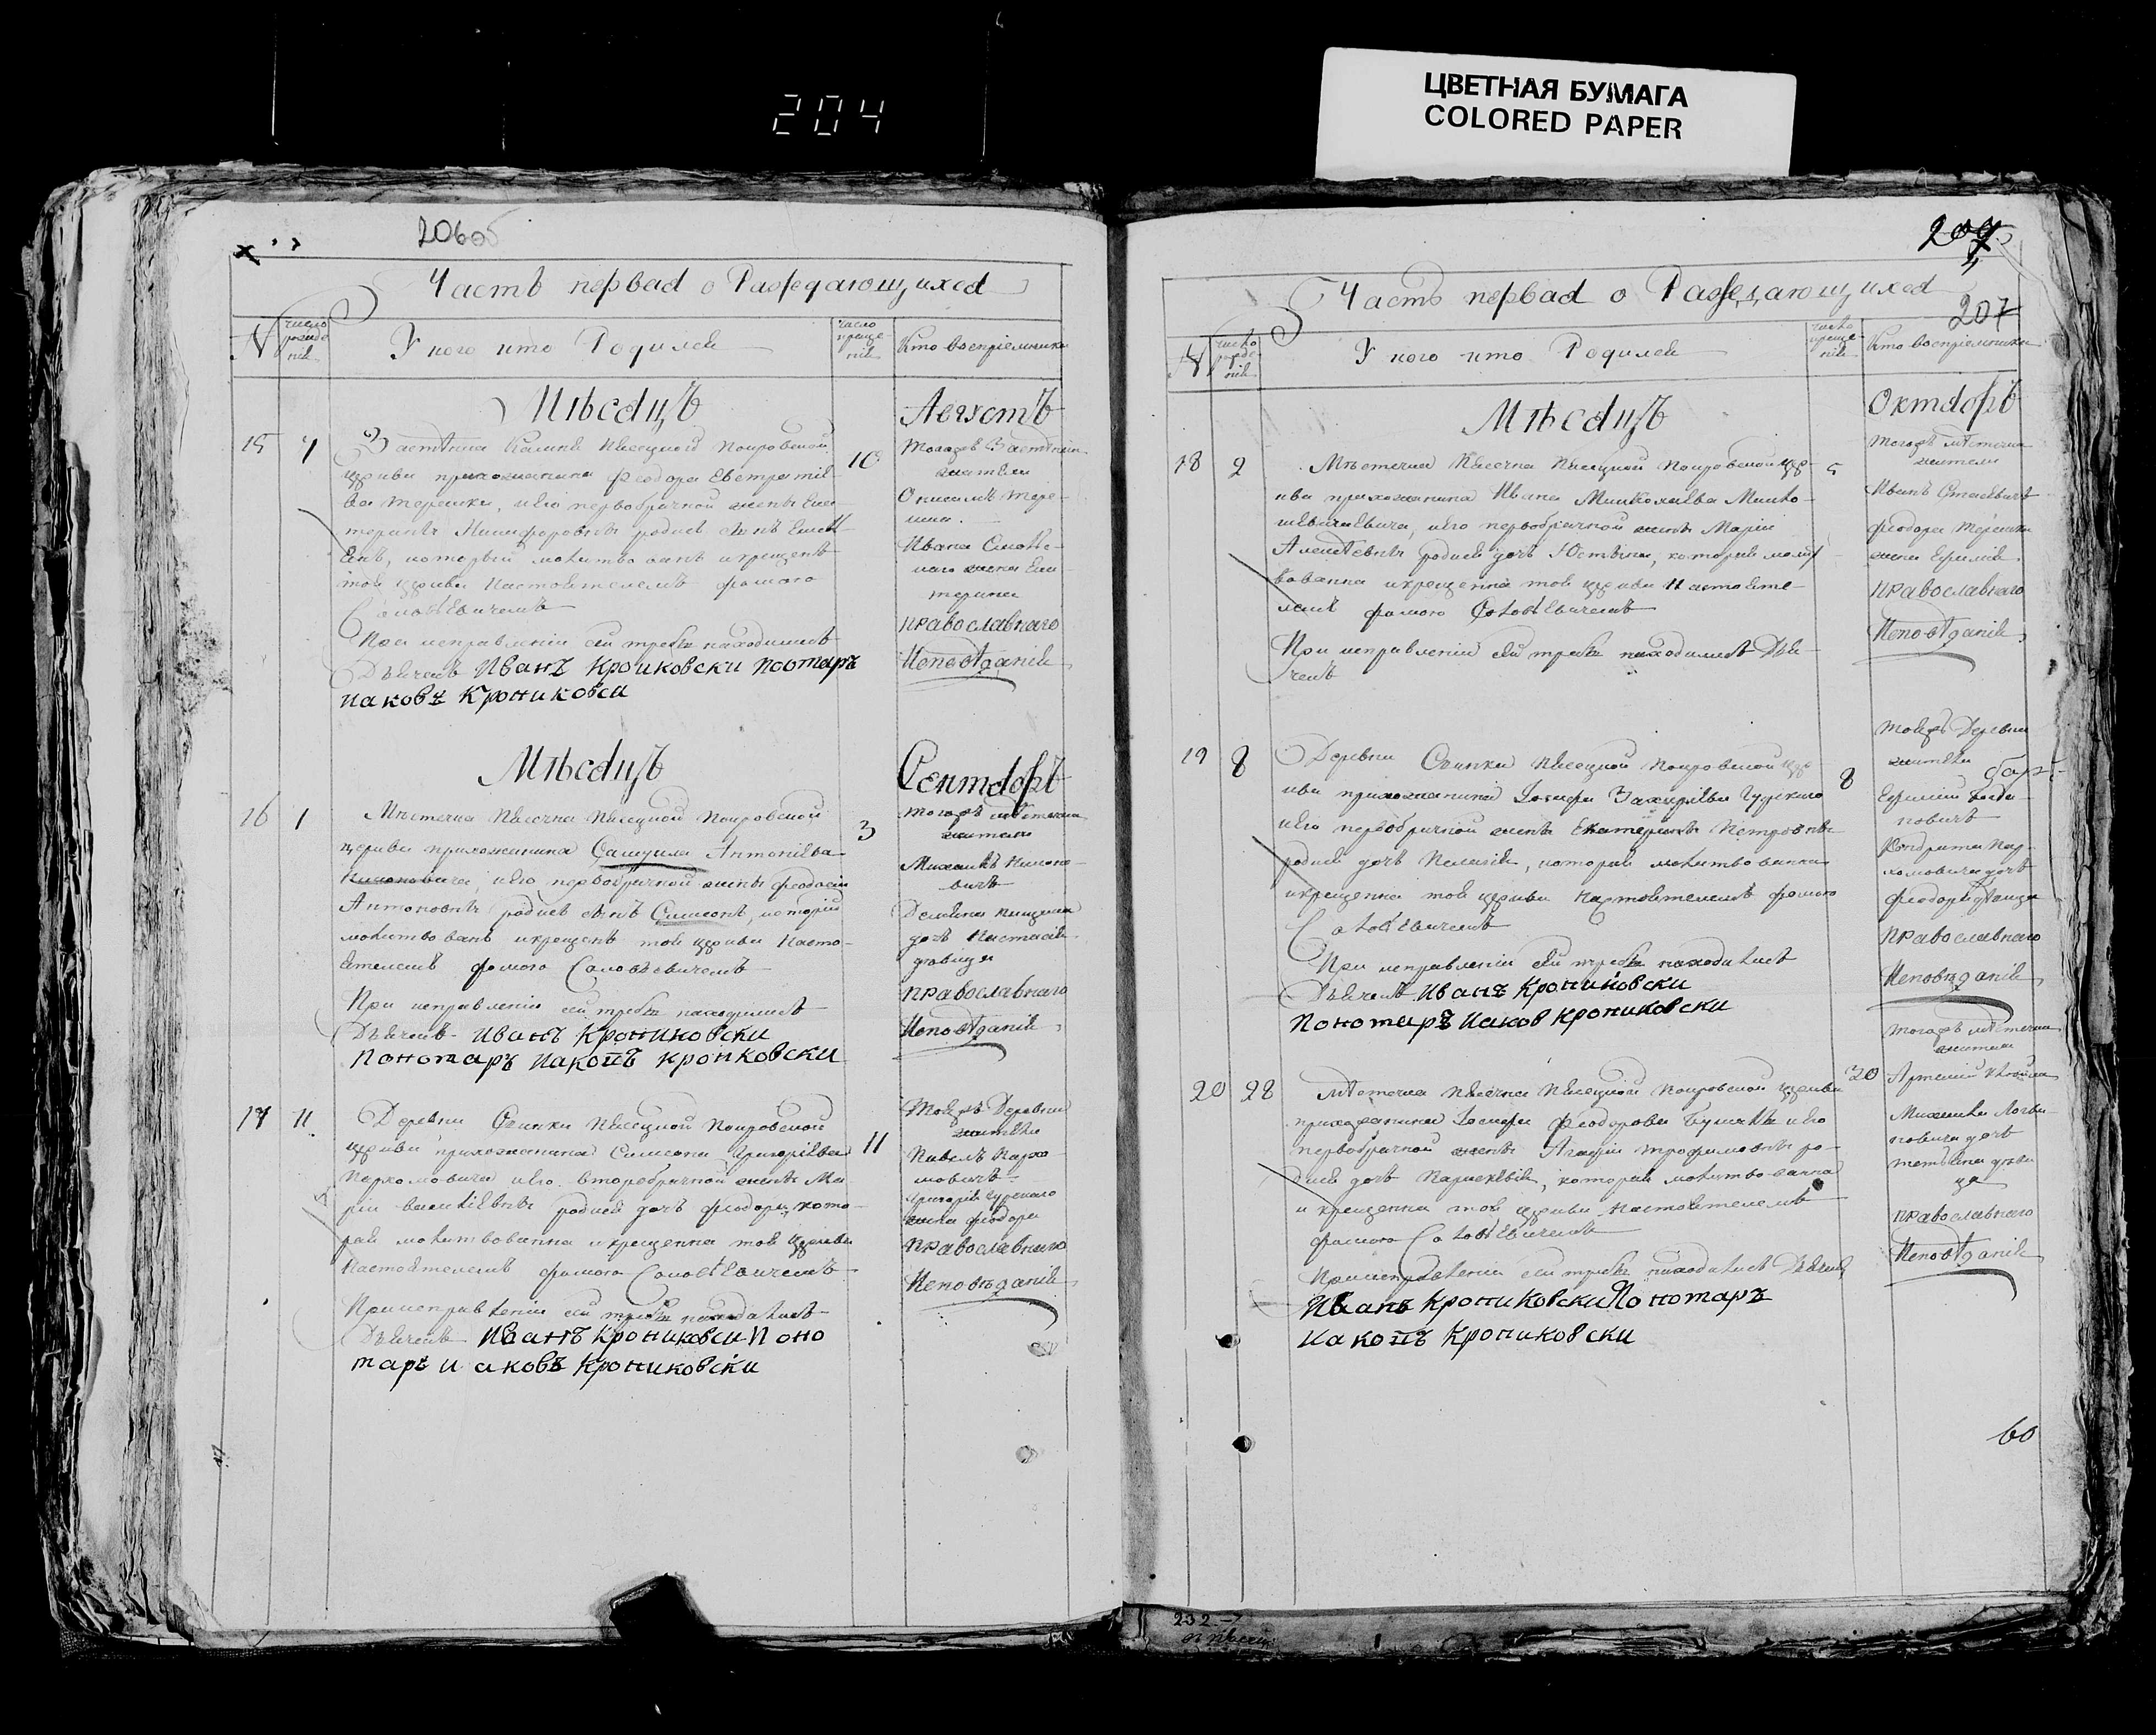 204
ЦВЕТНАЯ БУМАГА
COLORED PAPER
206об
Часть первая о Раждающихся
№
число рожде нія
У кого кто Родился
число креще нія
Кто воспріемники
Мѣсяцъ
Августъ
15
7
Застѣнка Калинъ Пѣсецкой Покровской
церкви прихожанина Феодора Евстратіе
ва Терешки, и его первобрачной жены Ека
терины Никифоровны родился сынъ
который молитвованъ и крещенъ
той церкви Настоятелемъ Фомою
Соловьевичемъ
При исправленіи сей требы находились
Дьячекъ Иванъ Крониковски Поотаръ
Иаковъ Крониковси
10
Тогожъ Застѣнка
жители
Тере-
шка.
Ивана
жена Ека
терина
православнаго
Исповѣданія
Мѣсяцъ
Сентябрь
16
1
Мѣстечка Пѣсечна Пѣсецкой Покровской
церкви прихожанина Самуила Антоніева
и его первобрачной жены Феодосіи
Антоновны родился сынъ Симеонъ, который
молитвованъ и крещенъ той церкви Насто-
ятелемъ Фомою Соловьевичемъ
При исправленіи сей требы находились
Дьячекъ Иванъ Крониковски
Пономаръ Иаковъ Крониковски
3
Тогожъ мѣстечка
жители
Михаилъ
дочь Настасія
дѣвица
православнаго
Исповѣданія
17
11
Деревни Свинки Пѣсецкой Покровской
церкви прихожанина Симеона Григоріева
Пархомовича и его второбрачной жены Ма-
ріи Васильевны родилась дочь Феодора, кото-
рая молитвованна и крещенна той церкви
Настоятелемъ Фомою Соловьевичемъ
При исправленіи сей требы находились
Дьячекъ Иванъ Крониковси Поно
таръ Иаковъ Крониковски
11
Тойжъ Деревни
жители
Павелъ Пархо
мовичъ
Григорія Гурскаго
жена Феодора
Православнаго
Исповѣданія
207
207
Часть первая о Раждающихся
№
число рожде- нія
У кого кто Родился
число креще- нія
Кто воспріемники
Мѣсяцъ
Октябрь
18
2
Мѣстечка Пѣсечна Пѣсецкой Покровской цер-
кви прихожанина Ивана
и его первобрачной жены Маріи
Алексѣевны родилась дочь Юстына, которая молит
вованна и крещенна той церкви Настояте-
лемъ Фомою Соловьевичемъ
При исправленіи сей требы находились Дья-
чекъ
5
Тогожъ мѣстечка
жители
Иванъ
Феодора Терешки
жена
Православнаго
Исповѣданія
19
8
Деревни Свинки Пѣсецкой Покровской цер
кви прихожанина Іосифа Захаріева Гурскаго
и его первобрачной жены Екатерины Петровны
родилась дочь Пелагія, которая молитвованна
и крещенна той церкви Настоятелемъ Фомою
Соловьевичемъ
При исправленіи сей требы находились
Дьячекъ Иванъ Крониковски
Пономаръ Иаков Крониковски
8
Тойжъ Деревни
жители
Кондрата Пар-
хомовича дочь
Феодора дѣвица
Православнаго
Исповѣданія
20
28
Мѣстечка Пѣсечна Пѣсецкой Покровской церкви
прихожанина Іосифа Феодорова и его
первобрачной жены Агафіи Трофимовны ро-
дилась дочь Параскевія, которая молитвованна
и крещенна той церкви Настоятелемъ
Фомою Соловьевичемъ
При исправленіи сей требы находились Дьячекъ
Иванъ Крониковски Пономаръ
Иаковъ Крониковски
30
Тогожъ мѣстечка
жители
Артемій
Михаила
дочь
дѣви
ца
Православнаго
Исповѣданія
60
232